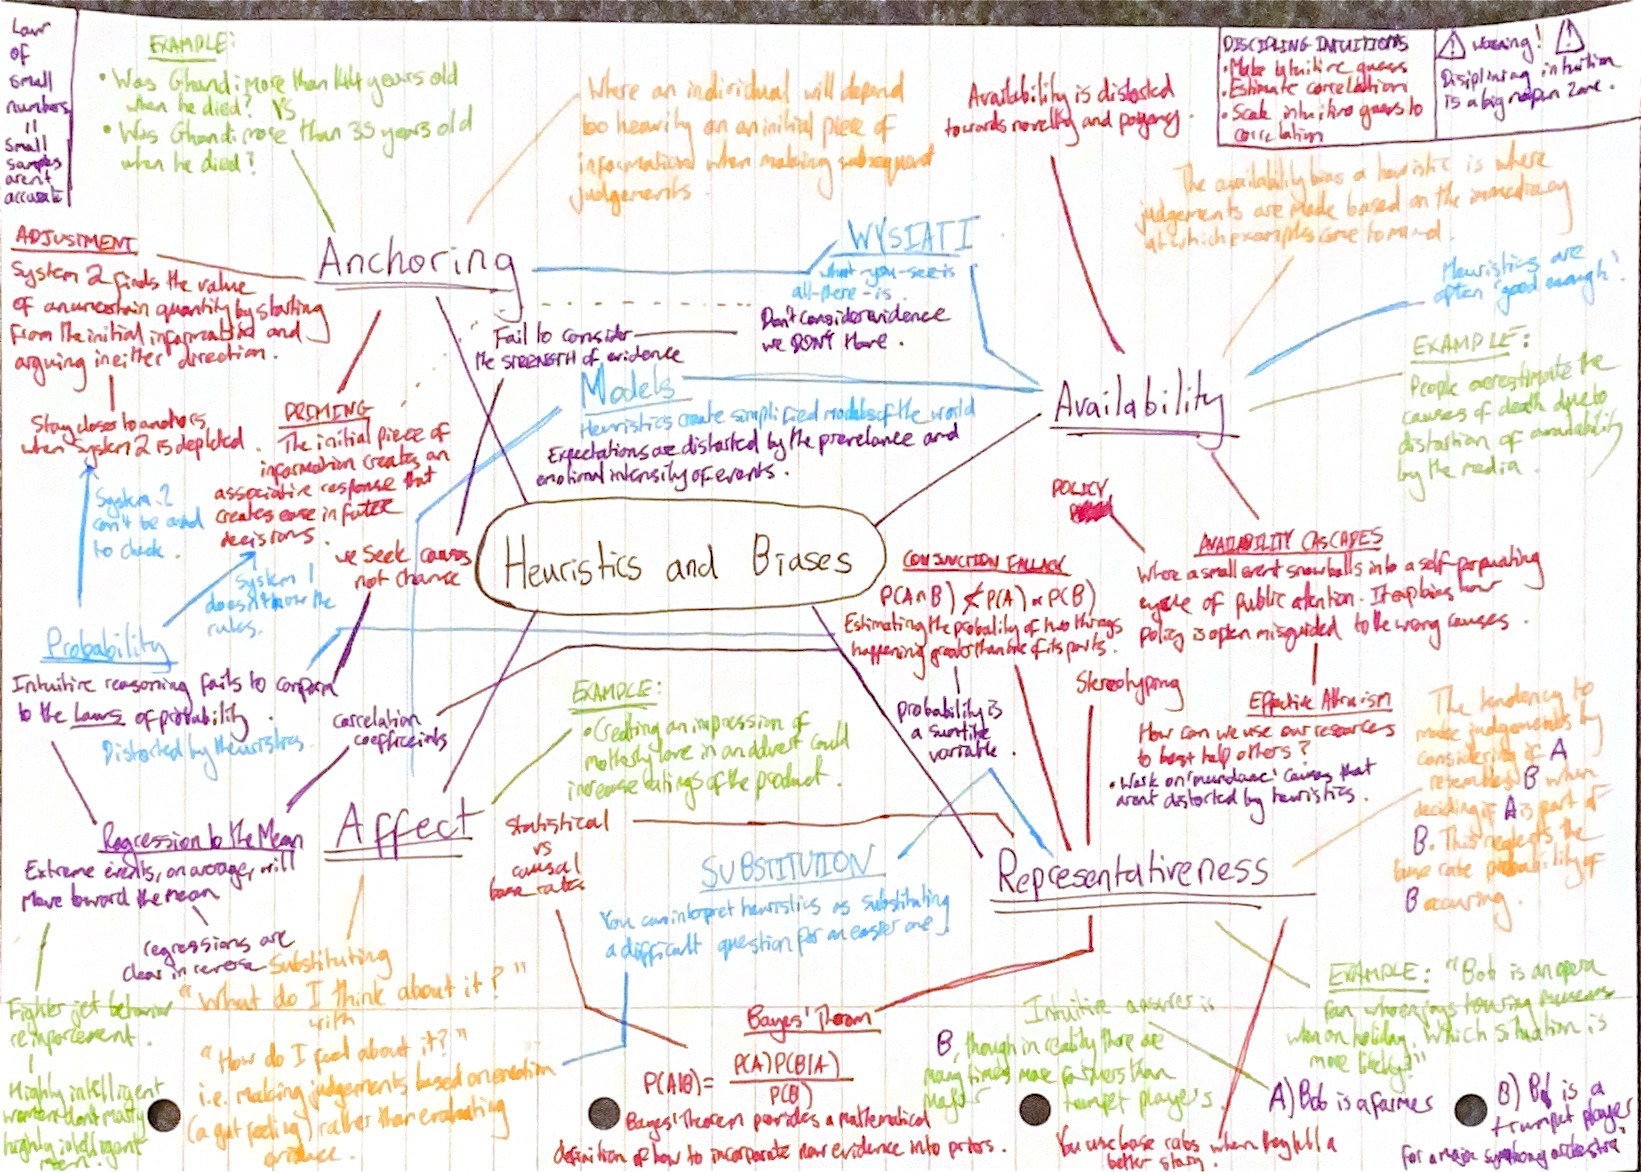 Law
of
small
numbers
=
small
samples
aren't
accurate
EXAMPLE:
• Was Ghandi more than 144 years old
when he died? VS
• Was Ghandi more than 35 years old
when he died?
Where an individual will depend
too heavily on an initial piece of
information when making subsequent
judgements.
Availability is distorted
towards novelty and
DISCIPLING INTUITIONS
• Make intuitive guess
• Estimate correlation
• Scale intuitive guess to
correlation
Warning!
Disiplining intuition
is a big no fun zone.
The availability bias a heuristic is where
judgements are made based on the immediacy
at which examples come to mind.
ADJUSTMENT
System 2 finds the value
of an uncertain quantity by starting
from the initial information and
arguing in either direction.
Stay closer to anchors
when System 2 is depleted.
Anchoring
WYSIATI
what-you-see-is
all-there-is.
Fail to consider
the STRENGTH of evidence
Don't consider evidence
we DON'T have.
Heuristics are
often 'good enough'.
EXAMPLE:
People overestimate the
causes of death due to
distortion of availability
by the media.
Models
Heuristics create simplified models of the world
Expectations are distorted by the prevelance and
emotional intensity of events.
Availability
PRIMING
The initial piece of
information creates an
associative response that
creates ease in future
decisions.
System 2
can't be asked
to check.
System 1
doesn't know the
rules.
we seek causes
not chance
Heuristics and Biases
POLICY
AVAILABILITY CASCADES
Where a small event snowballs into a self-perpetuating
cycle of public attention. It explains how
policy is often misguided to the wrong causes.
CONJUNCTION FALLACY
P(A∩B) ≮ P(A) ∝ P(B)
Estimating the probality of two things
happening greater than one of its parts.
Probability
Intuitive reasoning fails to conform
to the Laws of probability.
Distorted by heuristics.
correlation
coefficeints
EXAMPLE:
• Creating an impression of
motherly love in an advert could
increase ratings of the product.
probability is
a
variable.
Stereotyping
Effective Altruism
How can we use our resources
to best help others?
• Work on 'mundane' causes that
arent distorted by heuristics.
The tendency to
make judgements by
considering if A
resembles B when
deciding if A is part of
B. This neglects the
base rate probability of
B occuring.
Regression to the Mean
Extreme events, on average, will
Move toward the mean
regressions are
clear in reverse
Affect
statistical
vs
causal
base rates
SUBSTITUTION
You can interpret heuristics as substituting
a difficult question for an easier one
Representativeness
Fighter jet behavior
reinforcement.
Highly intelligent
women dont marry
highly intelligent
men.
Substituting
"What do I think about it?"
with
"How do I feel about it?"
i.e. making judgements based on emotion
(a gut feeling) rather than evaluating
evidence.
Bayes' Theorm
P(A|B) = P(A)P(B|A)
P(B)
Bayes' Theorem provides a mathematical
definition of how to incorporate new evidence into priors.
Intuitive answer is
B, though in reality there are
many times more farmers than
major trumpet players.
EXAMPLE: "Bob is an opera
fan who enjoys touring museums
when on holiday. Which situation is
more likely?"
A) Bob is a farmer
B) Bob is a
trumpet player
for a major symphony orchestra
You use base rates when they tell a
better story.